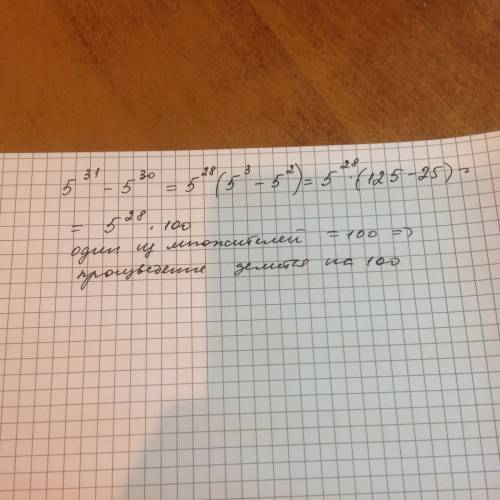 5³¹ - 5³⁰ = 5²⁸(5³ - 5²) = 5²⁸·(125 - 25) =
= 5²⁸ · 100
один из множителей = 100 =>
произведение делится на 100